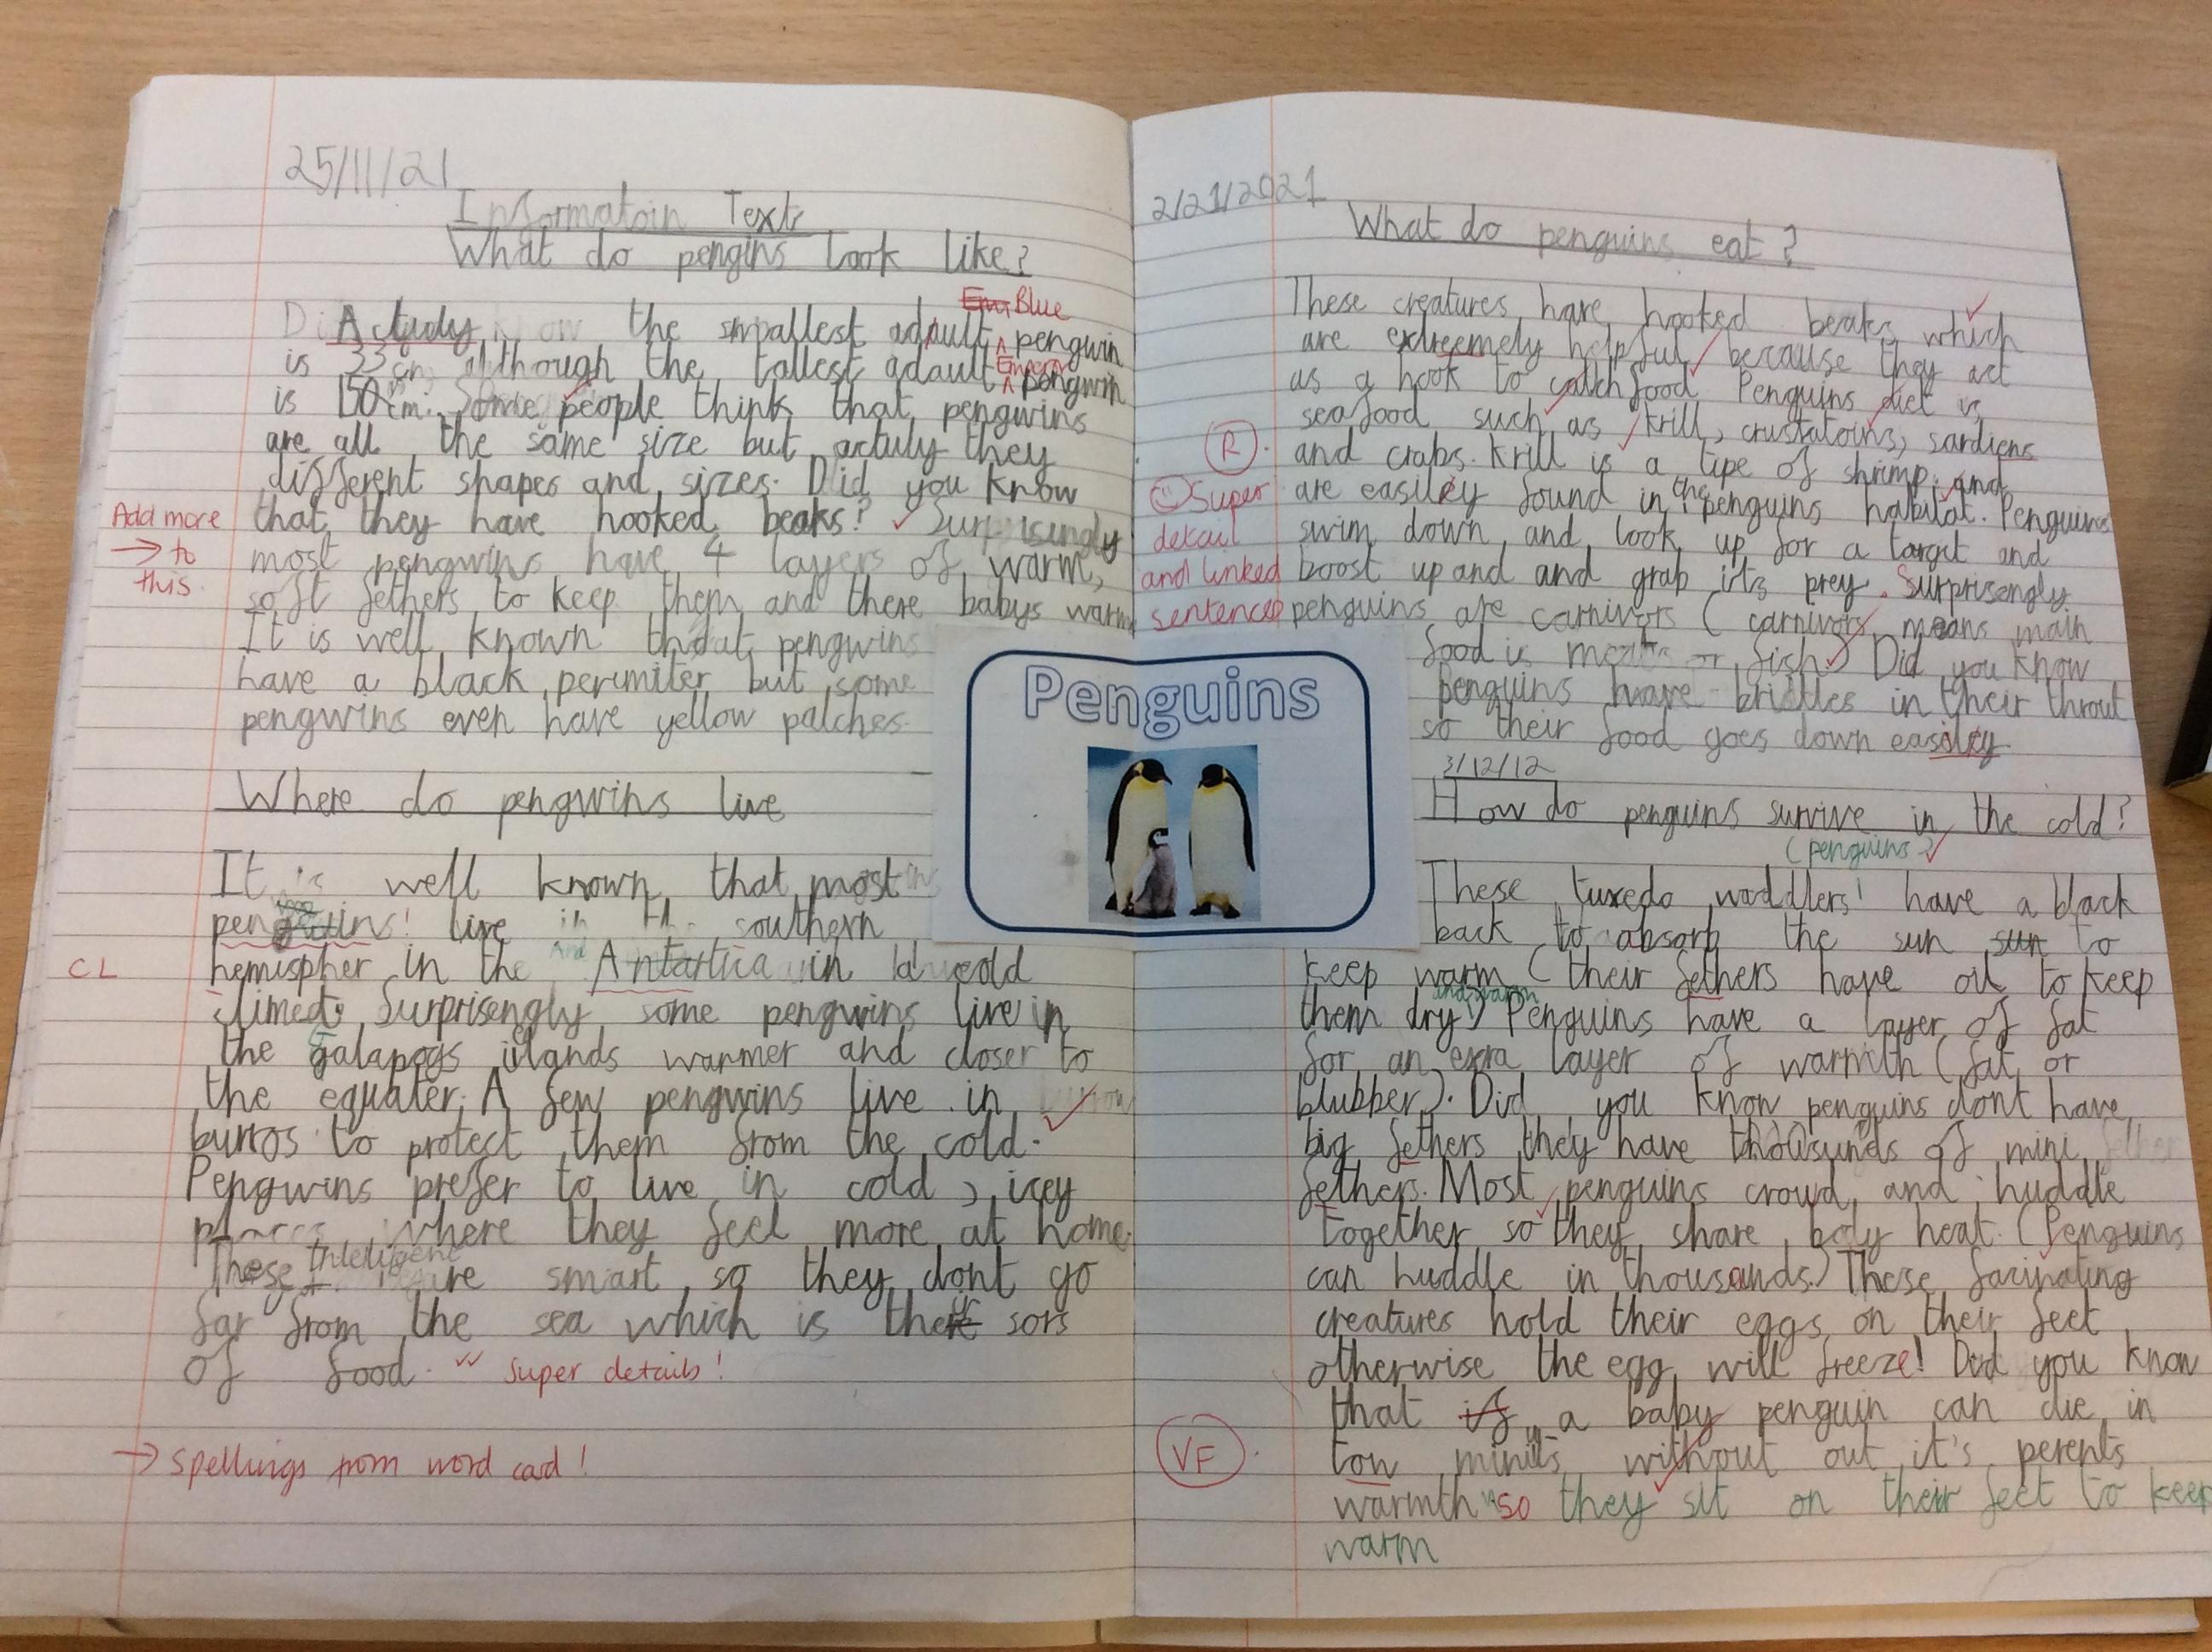 25/11/21
Informatoin Text
What do pengins look like?
Actuly the smallest adault Blue penguin
is 33cm although the tallest adault Emperor pengwin
is 150cm. Some people think that pengwins
are all the same size but actuly they
different shapes and sizes. Did you know
that they have hooked beaks? Surprisingly
Add more
→ to
this.
most pengwins have 4 layers of warm,
soft fethers to keep them and there babys warm
It is well known that pengwins
have a black perimiter but some
pengwins even have yellow patches.
Where do pengwins live
It is well known that most
penguins! live in the southern
CL
hemispher in the Antartica in cold
climed. Surprisengly some pengwins live in
the Galapogs islands warmer and closer to
the equater. A few pengwins live in
burros to protect them from the cold.
Pengwins prefer to live in cold, icey
places where they feel more at home.
These Intelligent are smart so they dont go
far from the sea which is their sors
of food. super details!
→ spellings from word card!
2/21/2021
What do penguins eat?
These creatures have hooked beaks which
are extreemely helpful because they act
as a hook to catch food. Penguins diet is
seafood such as krill, crustatoins, sardiens
R.
and crabs. Krill is a tipe of shrimp and
are easiley found in the penguins habitat. Penguins
swim down and look up for a target and
boost up and and grab its prey. Surprisengly
penguins are carnivors (carnivors means main
Super
detail
and linked
sentences
food is meat or fish.) Did you know
penguins have bristles in their throut
so their food goes down easiley.
Penguins
3/12/12
How do penguins survive in the cold?
(penguins)
These tuxedo waddlers! have a black
back to absorb the sun sun to
keep warm (their fethers have oil to keep
them dry and warm) Penguins have a layer of fat
for an exra layer of warmth (fat or
blubber). Did you know penguins dont have
big fethers they have thousunds of mini
fethers. Most penguins crowd and huddle
together so they share body heat. (Penguins
can huddle in thousands.) These facinating
creatures hold their eggs on their feet
otherwise the egg will freeze! Did you know
that if a baby penguin can die in
VF.
tow minits without out it's perents
warmth so they sit on their feet to keep
warm